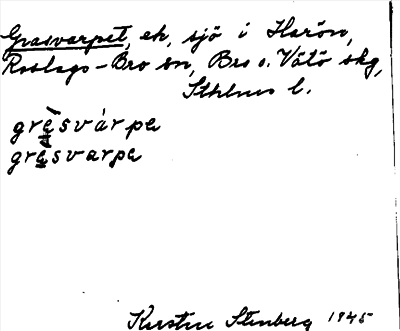 Grasvarpet, ek, sjö i Harön,
Roslags-Bro sn, Bro o. Vätö skg,
Sthlms l.
grèsvárpe
grèsvarpe
Kerstin Stenberg 1945